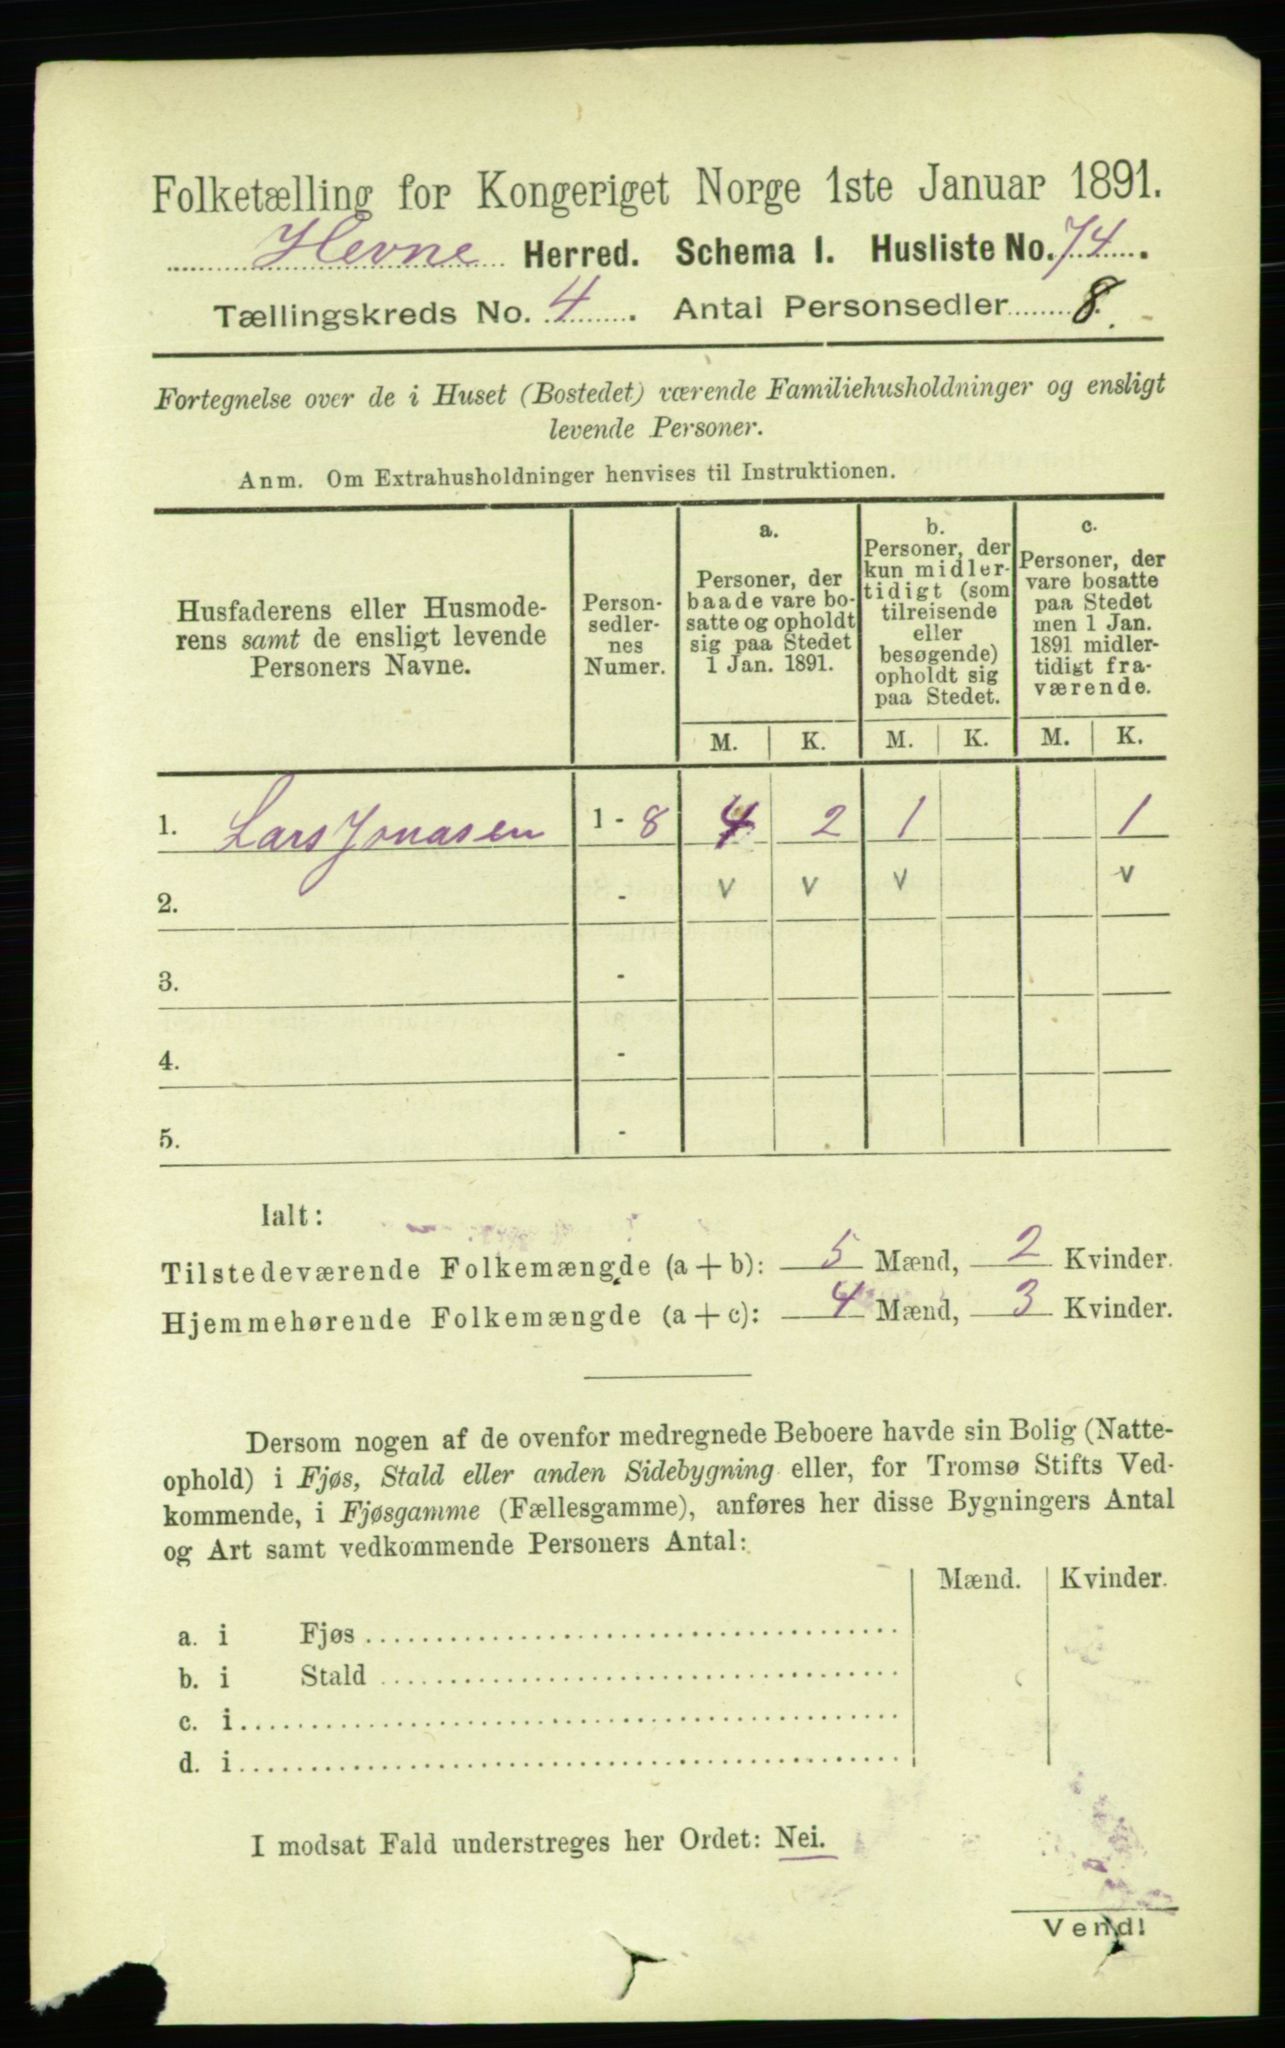 Folketælling for Kongeriget Norge 1ste Januar 1891.
Hevne Herred. Schema I. Husliste No. 74.
Tællingskreds No. 4. Antal Personsedler 8.
Fortegnelse over de i Huset (Bostedet) værende Familiehusholdninger og ensligt
levende Personer.
Anm. Om Extrahusholdninger henvises til Instruktionen.
Husfaderens eller Husmode-
rens samt de ensligt levende
Personers Navne.
Person-
sedler-
nes
Numer.
a.
Personer, der
baade vare bo-
satte og opholdt
sig paa Stedet
1 Jan. 1891.
b.
Personer, der
kun midler-
tidigt (som
tilreisende
eller
besøgende)
opholdt sig
paa Stedet.
c.
Personer, der
vare bosatte
paa Stedet
men 1 Jan.
1891 midler-
tidigt fra-
værende.
M. K. M. K. M. K.
1. Lars Jonasen 1 - 8 4 2 1 1
2. - v v v v
3. -
4. -
5. -
Ialt:
Tilstedeværende Folkemængde (a + b): 5 Mænd, 2 Kvinder.
Hjemmehørende Folkemængde (a + c): 4 Mænd, 3 Kvinder.
Dersom nogen af de ovenfor medregnede Beboere havde sin Bolig (Natte-
ophold) i Fjøs, Stald eller anden Sidebygning eller, for Tromsø Stifts Ved-
kommende, i Fjøsgamme (Fællesgamme), anføres her disse Bygningers Antal
og Art samt vedkommende Personers Antal:
Mænd. Kvinder.
a. i Fjøs
b. i Stald
c. i
d. i
I modsat Fald understreges her Ordet: Nei.
Vend!